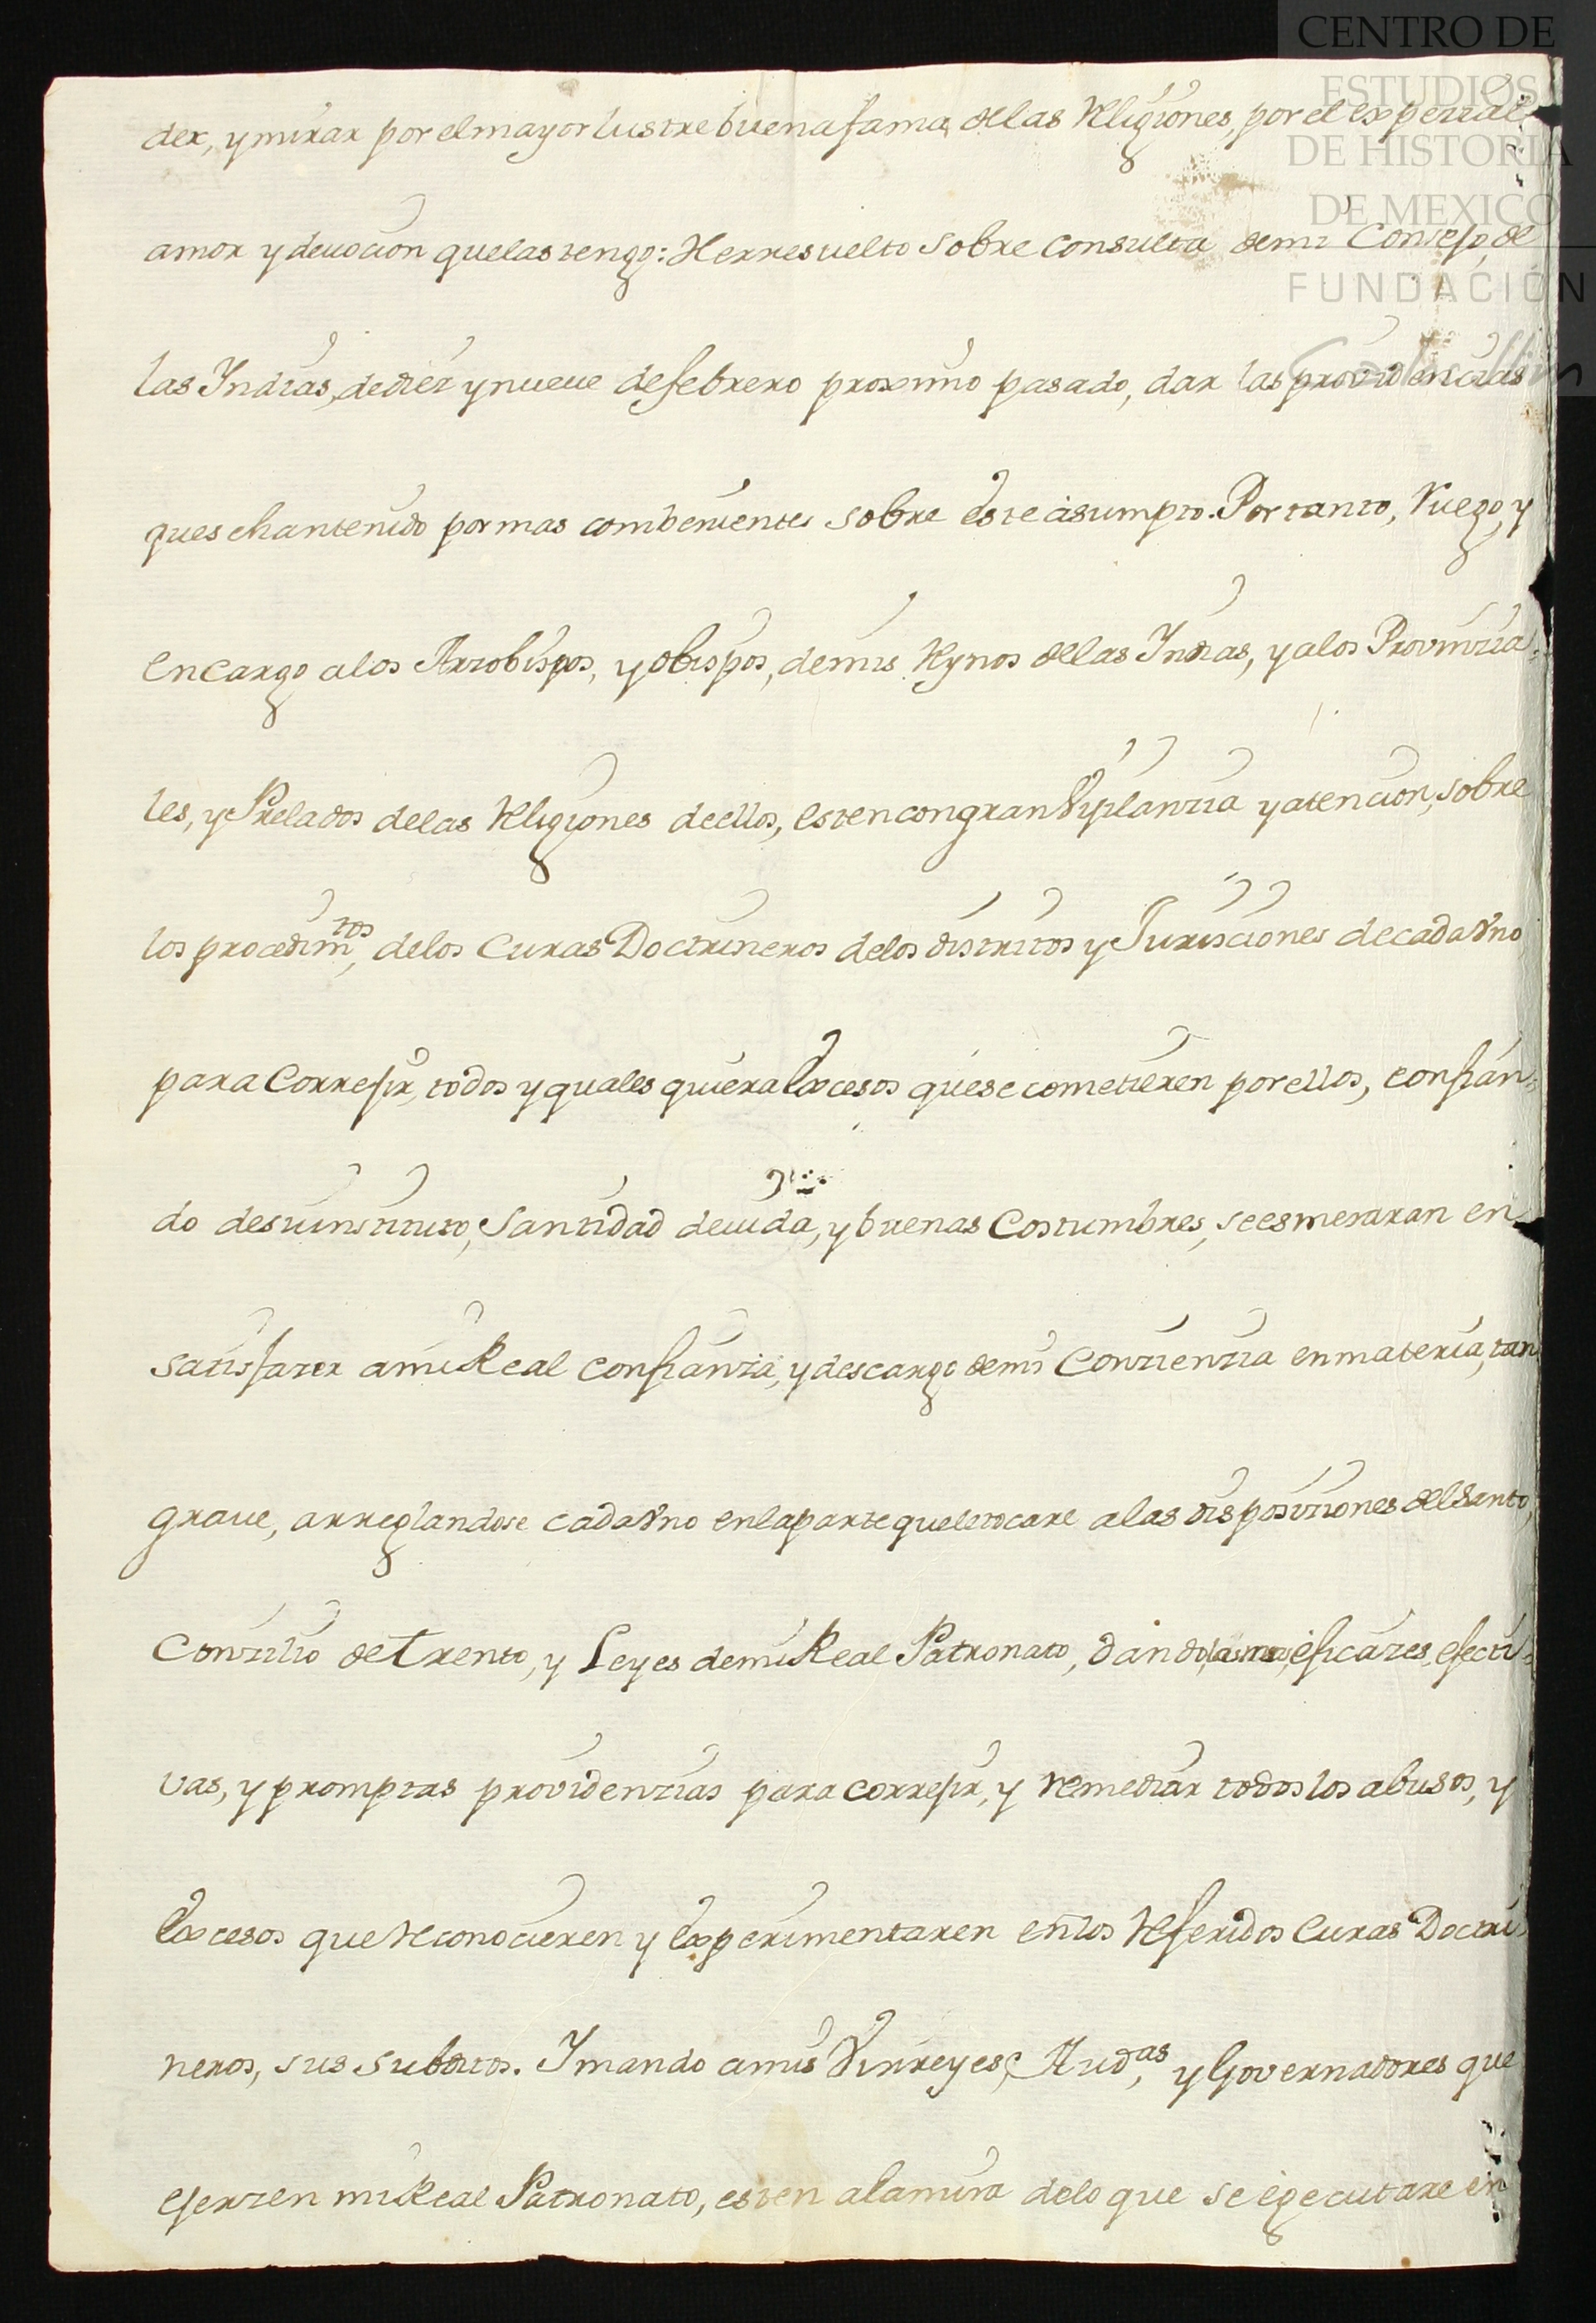 CENTRO DE
ESTUDIOS
DE HISTORIA
DE MEXICO
FUNDACIÓN
der, y mirar por el mayor lustre buena fama, de las Religiones, por el expezial
amor y devocion que las tengo: He rresuelto sobre consulta de mi Consejo, de
las Indias, de diez y nueve de febrero proximo pasado, dar las providencias
que se han tenido por mas combenientes sobre este asumpto. Por tanto, Ruego, y
encargo a los Arzobispos, y obispos, de mis Reynos de las Indias, y a los Provinzia-
les, y Prelados de las Religiones de ellos, esten con gran Vijilanzia y atencion, sobre
los procedimtos, de los Curas Doctrineros de los distritos y Jurisciones de cada Vno
para Correjir, todos y quales quiera Excesos que se cometieren por ellos, confian-
do de su instituto, Santidad de vida, y buenas Costumbres, se esmeraran en
satisfazer a mi Real confianza, y descargo de mi Conzienzia en materia, tan
grave, arreglandose cada Vno en la parte que le tocare a las disposiziones del Santo,
Conzilio de Trento, y Leyes de mi Real Patronato, dando las mas eficazes, efecti-
vas, y promptas providenzias para correjir, y remediar todos los abusos, y
Excesos que reconocieren y Experimentaren en los referidos Curas Doctri-
neros, sus subditos. I mando a mis Virreyes, Audas, y Governadores que
ejerzen mi Real Patronato, esten a la mira de lo que se egecutare en